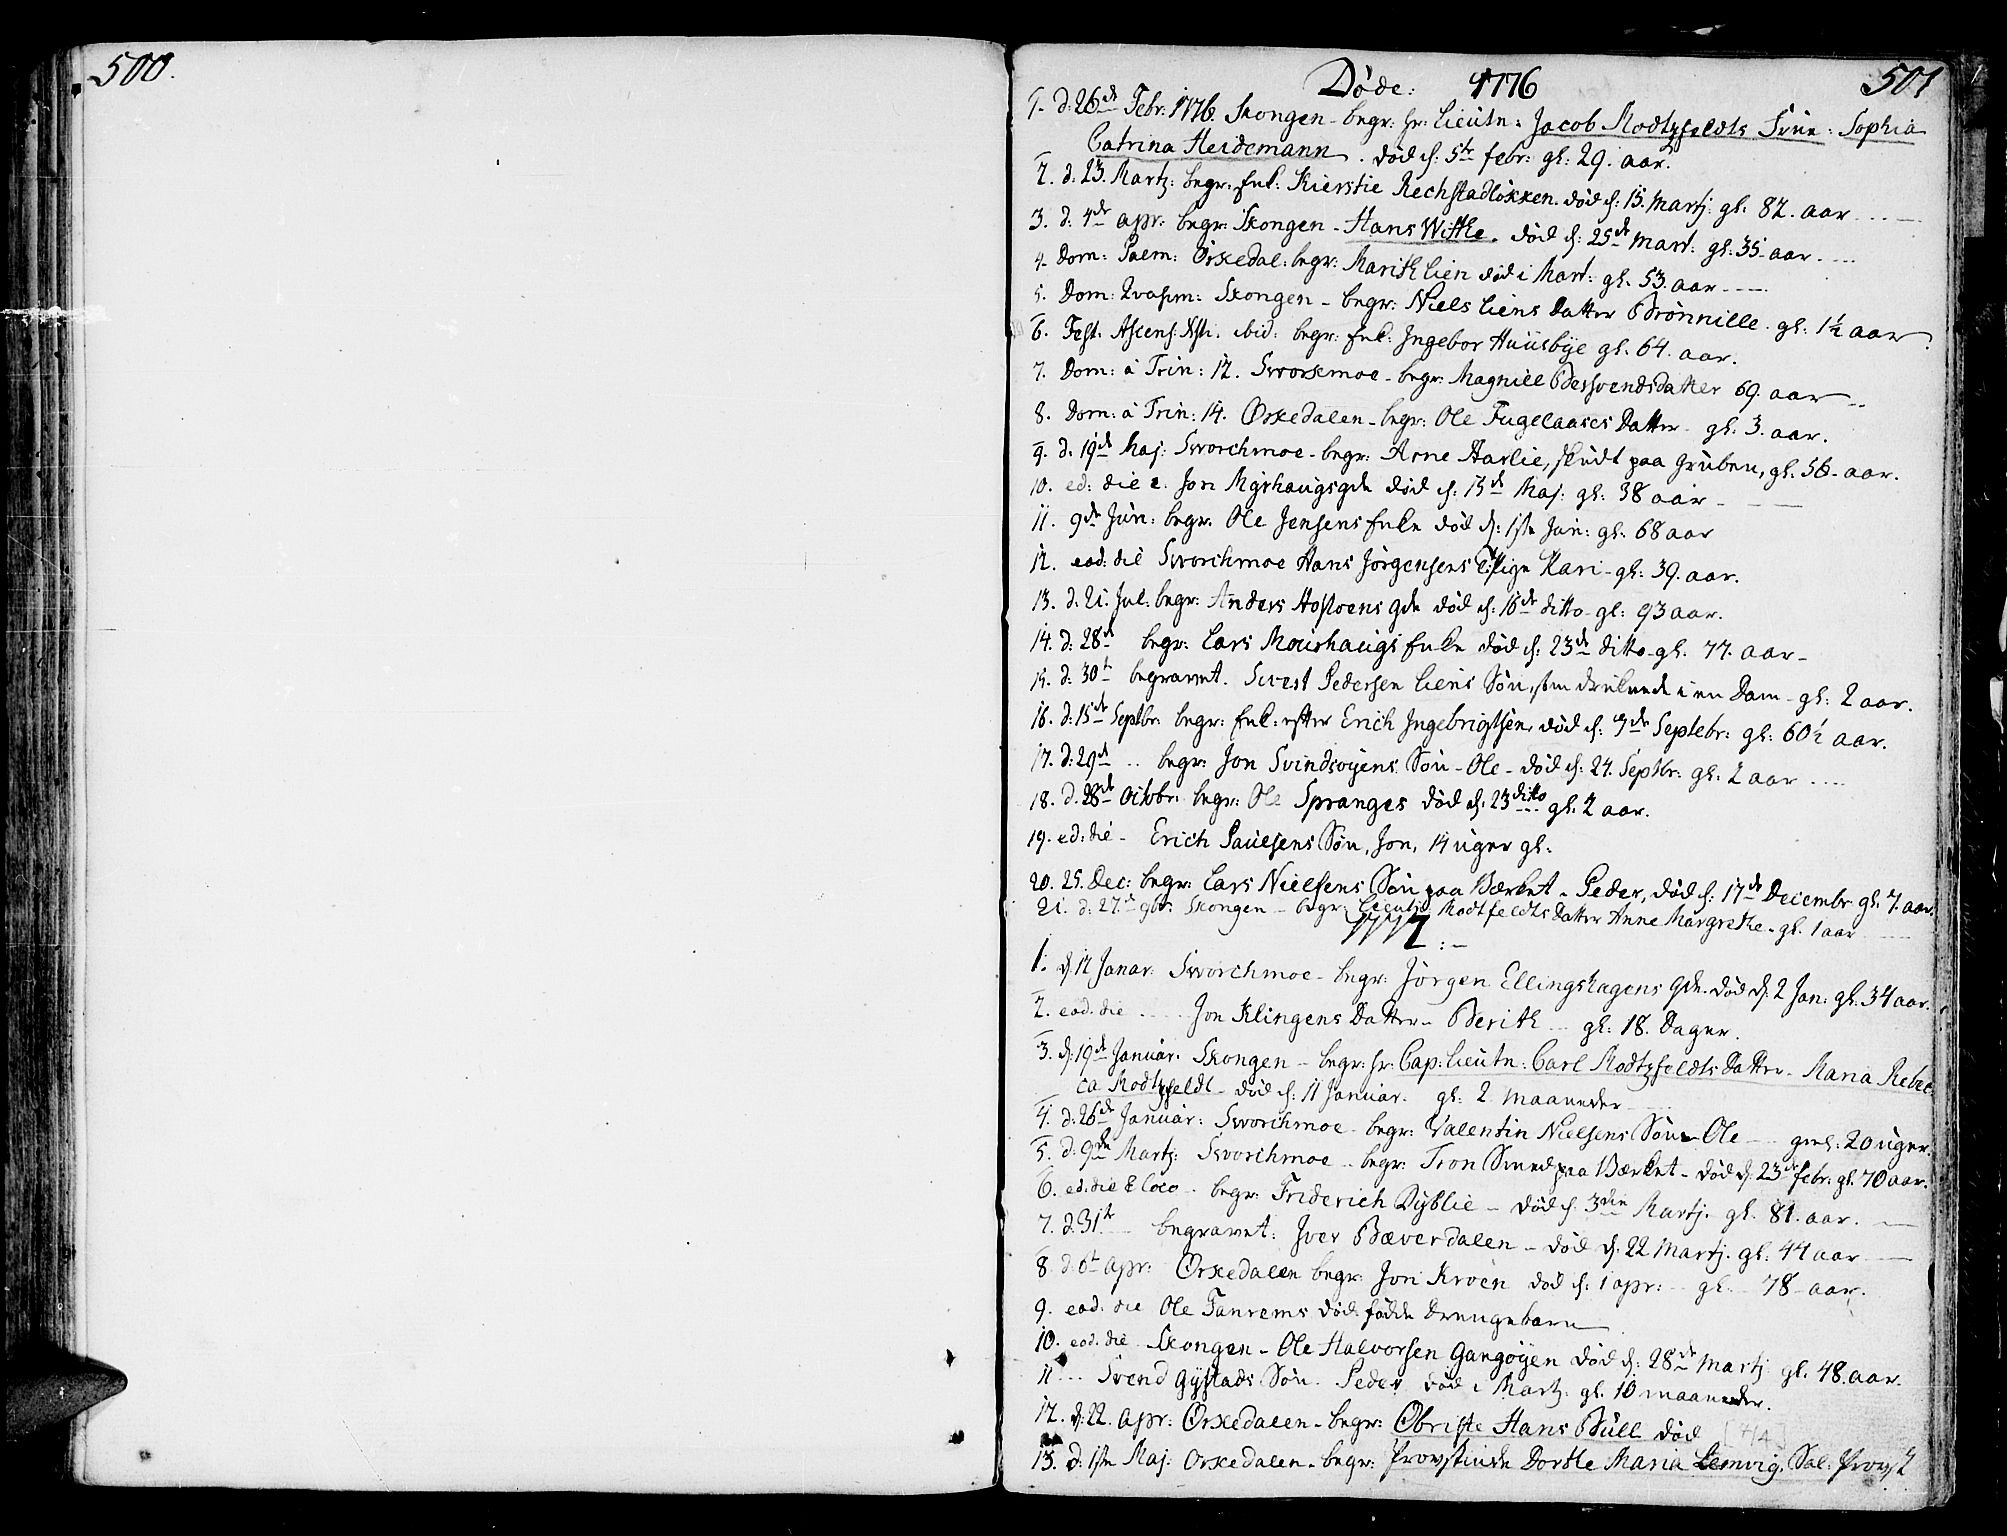 500.
Døde: 1776
501
1. d: 26de Febr: 1776. Skongen - begr: hr: Lieutn: Jacob Rodtzfeldts Frue: Sophia
Catrina Heidemann. død d: 5te febr: gl: 29. aar.
2. d: 23. Martz: begr: Enk: Kierstie Rechstadløkken. død d: 15. Martz: gl. 82. aar
3. d: 4de apr: begr: Skongen - Hans Withe. død d: 25de Mart: gl: 35 aar.
4. Dom: Palm: Orkedal: begr: Marith Lien død i Mart: gl. 53. aar
5. Dom: Qvasim: Skongen - begr: Niels Liens Datter Brønnille. gl: 1½ aar
6. Fest. Ascens: Xsti. ibid: begr: Enk: Ingebor Huusbye gl. 64. aar.
7. Dom: a Trin: 12. Svorkmoe - begr: Magnild Besvendsdatter 69. aar
8. Dom: a Trin: 14. Orkedalen - begr: Ole Fugelaases Datter gl: 3. aar.
9. d. 19de Maj: Svorchmoe - begr: Arne Aarlie, skudt paa Gruben, gl. 56 - aar.
10. ed: die e. Jon Myrhaugs gde død d: 15de Maj: gl: 38 aar
11. 9de Jun: begr. Ole Jensens Enke død d: 1ste Jun: gl. 68 aar
12. eod: die Svorchmoe Hans Jørgensens Pige Kari - gl: 39. aar.
13. d: 21. Jul: begr: Anders Hostoens gde død d: 16de ditto gl: 93 aar.
14. d: 28de begr: Lars Mourhaugs Enke død d: 23de ditto gl. 77. aar
15. d: 30te begravet. Sivert Pedersen Liens Søn, som druknede i en Dam - gl: 2 aar.
16. d: 15de Septbr: begr: Enk: efter Erich Ingebrigtsen, død d: 9de Septebr: gl: 60½ aar.
17. d: 29de .. begr: Jon Svindsøyens Søn - Ole - død d: 24. Septbr: gl: 2 aar
18. d. 28de Octobr: begr: Ole Spranges død d: 23 ditto gl: 2 aar.
19. ed: die - Erich Paulsens Søn, Jon, 14 uger gl:
20. 25. Dec: begr: Lars Nielsens Søn paa Værket - Peder, død d: 17de Decembr gl. 7. aar
21. d: 27de 9br: Skongen - begr: Lieutn: Rodtzfeldts Datter Anne Margrethe - gl. 1 aar
1777:
1. d: 12 Januar: Svorchmoe - begr: Jørgen Ellingshagens gde. død d: 2 Jan: gl. 34 aar.
2. eod. die ... Jon Klingens Datter - Berith ... gl: 18. Dager.
3. d: 19de Januar. Skongen - begr: hr: Cap: Lieutn: Carl Rodtzfeldts Datter - Maria Rebec-
ca Rodtzfeldt - død d: 11 Januar. gl: 2 maaneder
4. d: 26de Januar: Svorchmoe - begr: Valentin Nielsens Søn Ole - gml: 20 uger.
5. d: 9de Martz: Svorchmoe - begr: Tron Smed paa Værket - død d: 23de febr: gl. 70 aar.
6. ed: die & loco - begr: Friderich Dyblie - død d. 3die Martz. gl. 81. aar.
7. d. 31te begravet: Iver Bæverdalen - død d: 22 Martz. gl. 44 aar
8. d: 6te apr: Orkedalen begr: Jon Kroen død d: 1 apr: gl. 78 aar.
9. eod: die Ole Fanrems død: fødde drengebarn
10. eod. die Skongen - Ole Halvorsen Gangøyen død d: 28de Martz gl. 48. aar
11 ... Svend Gystads Søn. Peder død i Martz. gl. 10 maaneder.
12. d: 22. apr: Orkedalen - begr: Obriste Hans Büll død [4/4]
13. d: 1ste Maj: Orkedalen - begr: Provstinde Dorthe Maria Lemvig, Sal: Provst